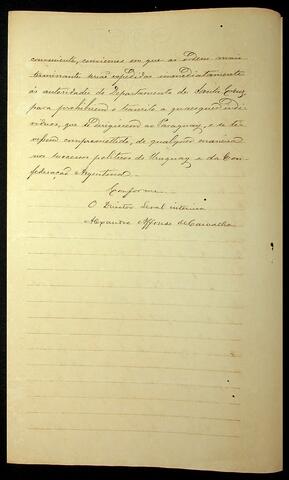 conveniente, convieram em que as ordens mais
terminante serão expedidas immediatamente
ás autoridades do Departamento de Santa Cruz,
para prohibirem o transito a quaesquer indi-
viduos, que se dirigissem ao Paraguay, e se ti-
vessem compromettido, de qualquer maneira
nos successos politicos do Uruguay e da Con-
federacão Argentina.
Conforme
O Director Geral interino
Alexandre Affonso de Carvalho